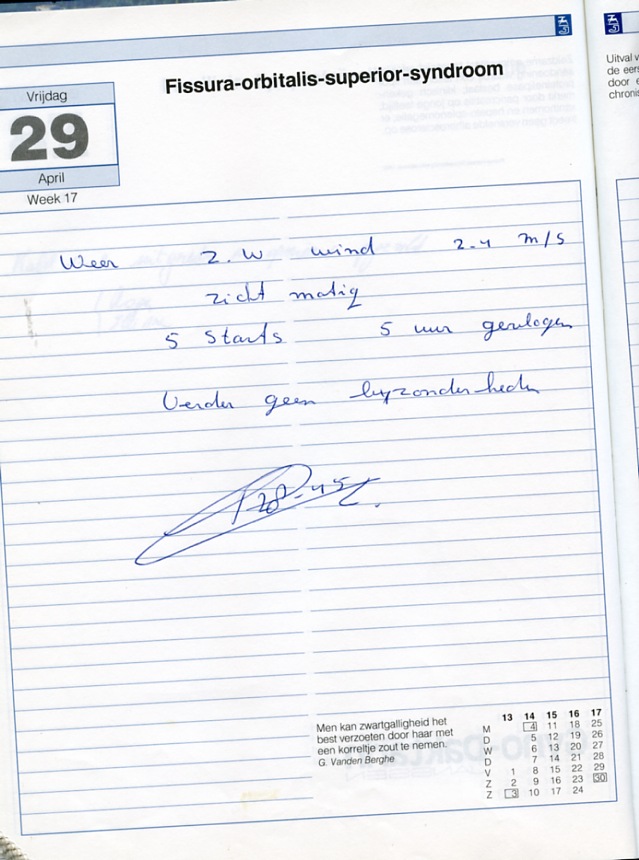 Fissura-orbitalis-superior-syndroom
Vrijdag
29
April
Week 17
Uitval v
de eers
door e
chronis
Weer Z.W wind 2-4 m/s
zicht matig
5 Starts 5 uur gevlogen
Verder geen byzonderheden
Men kan zwartgalligheid het
best verzoeten door haar met
een korreltje zout te nemen.
G. Vanden Berghe
13 14 15 16 17
M 4 11 18 25
D 5 12 19 26
W 6 13 20 27
D 7 14 21 28
V 1 8 15 22 29
Z 2 9 16 23 30
Z 3 10 17 24